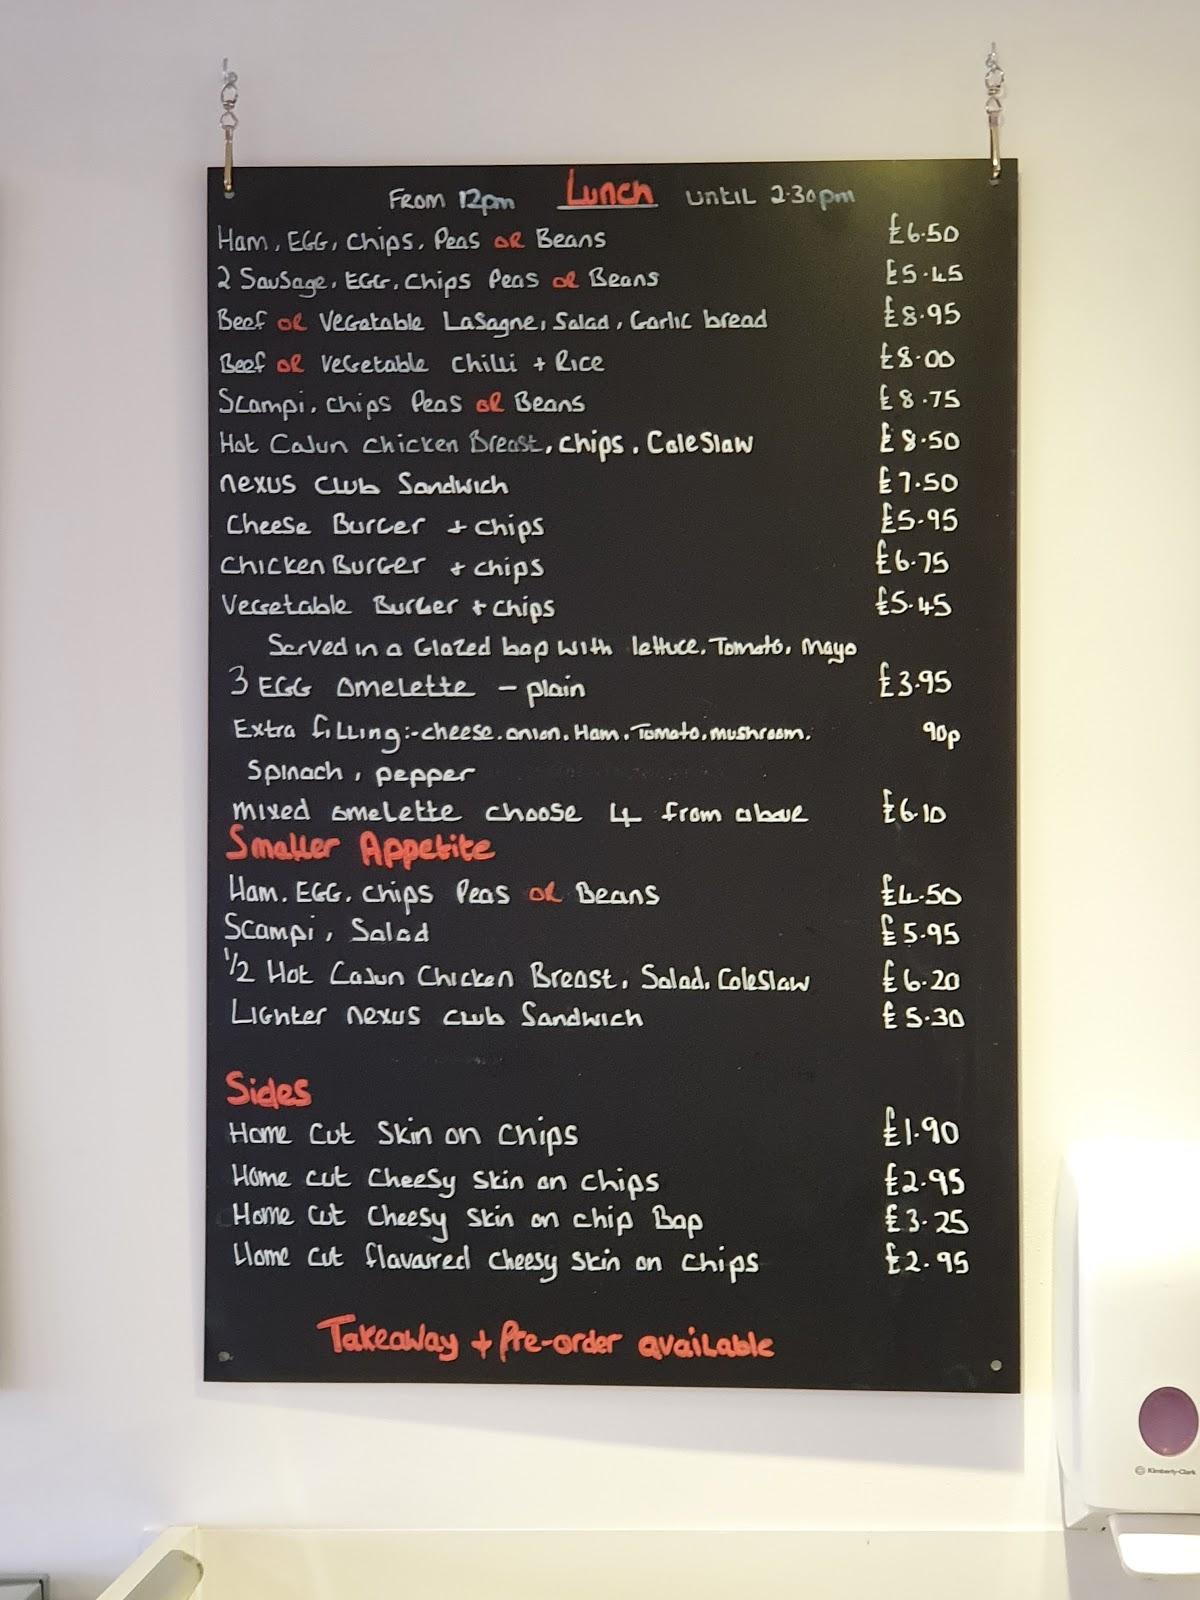 From 12pm Lunch until 2.30pm
Ham, Egg, Chips, Peas or Beans £6.50
2 Sausage, Egg, Chips Peas or Beans £5.45
Beef or Vegetable Lasagne, Salad, Garlic bread £8.95
Beef or Vegetable Chilli + Rice £8.00
Scampi, Chips Peas or Beans £8.75
Hot Cajun Chicken Breast, Chips, Coleslaw £8.50
Nexus Club Sandwich £7.50
Cheese Burger + Chips £5.95
Chicken Burger + Chips £6.75
Vegetable Burger + Chips £5.45
Served in a Glazed bap with lettuce, Tomato, Mayo
3 Egg Omelette – plain £3.95
Extra filling:- cheese. onion. Ham. Tomato. mushroom. 90p
Spinach, pepper
Mixed omelette choose 4 from above £6.10
Smaller Appetite
Ham. Egg. Chips Peas or Beans £4.50
Scampi, Salad £5.95
1/2 Hot Cajun Chicken Breast, Salad, Coleslaw £6.20
Lighter Nexus Club Sandwich £5.30
Sides
Home Cut Skin on Chips £1.90
Home cut Cheesy Skin on Chips £2.95
Home Cut Cheesy Skin on chip Bap £3.25
Home Cut flavoured Cheesy Skin on Chips £2.95
Takeaway + Pre-order available
Kimberly-Clark